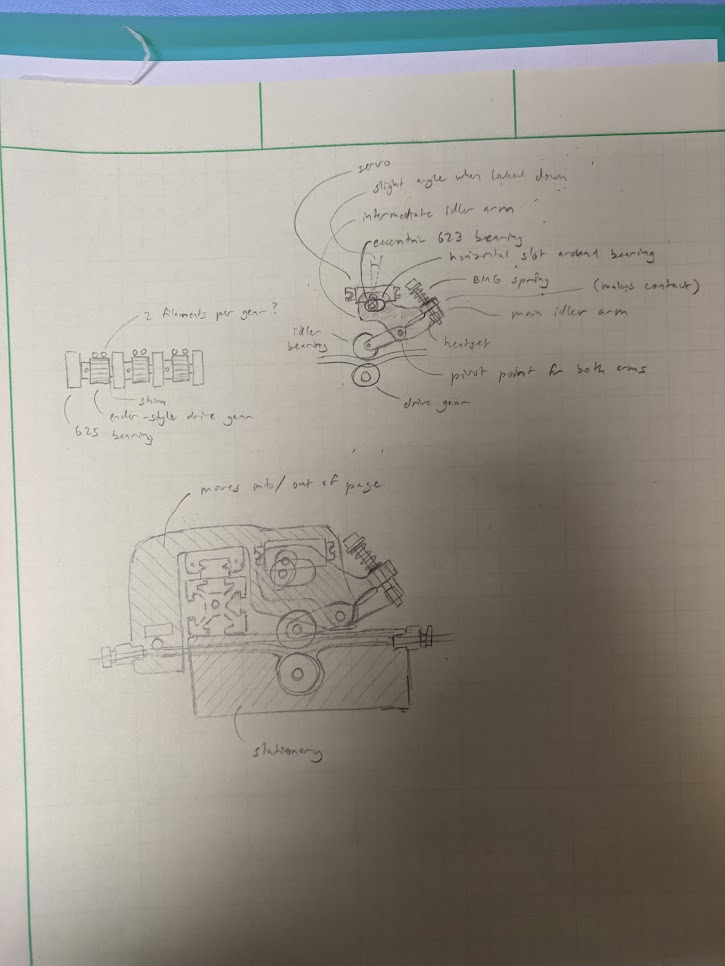 servo
slight angle when locked down
intermediate idler arm
eccentric 623 bearing
horizontal slot around bearing
BMG spring
(makes contact)
main idler arm
2 filaments per gear?
idler
bearing
heatset
pivot point for both arms
drive gear
shim
ender-style drive gear
625
bearing
moves into/out of page
stationary